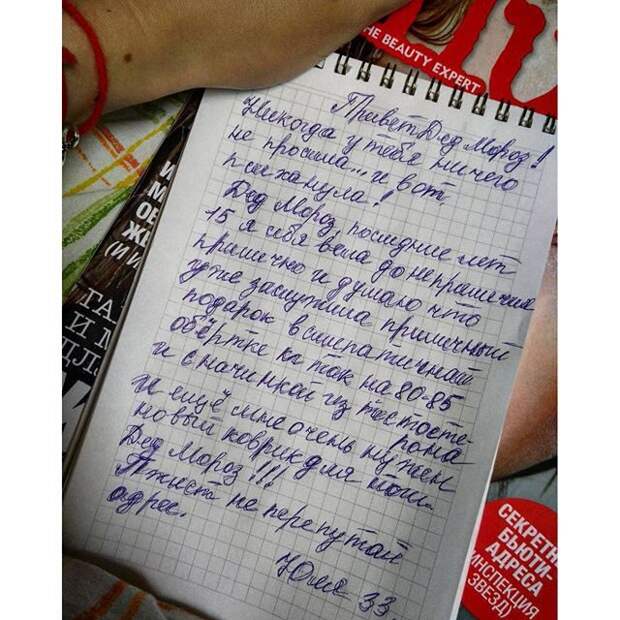 THE BEAUTY EXPERT
Привет Дед Мороз!
Никогда у тебя ничего
не просила... и вот
психанула!
Дед Мороз, последние лет
15 я себя вела донеприличия
прилично и думаю что
уже заслужила приличный
подарок в симпатичной
обёртке кг так на 80-85
и с начинкой из тестосте-
рона
и ещё мне очень нужен
новый коврик для
Дед Мороз!!!
Пжиста не перепутай
адрес.
Юля 33
СЕКРЕТН
БЬЮТИ-
АДРЕСА
(ИНСПЕКЦИЯ
ЗВЕЗД)